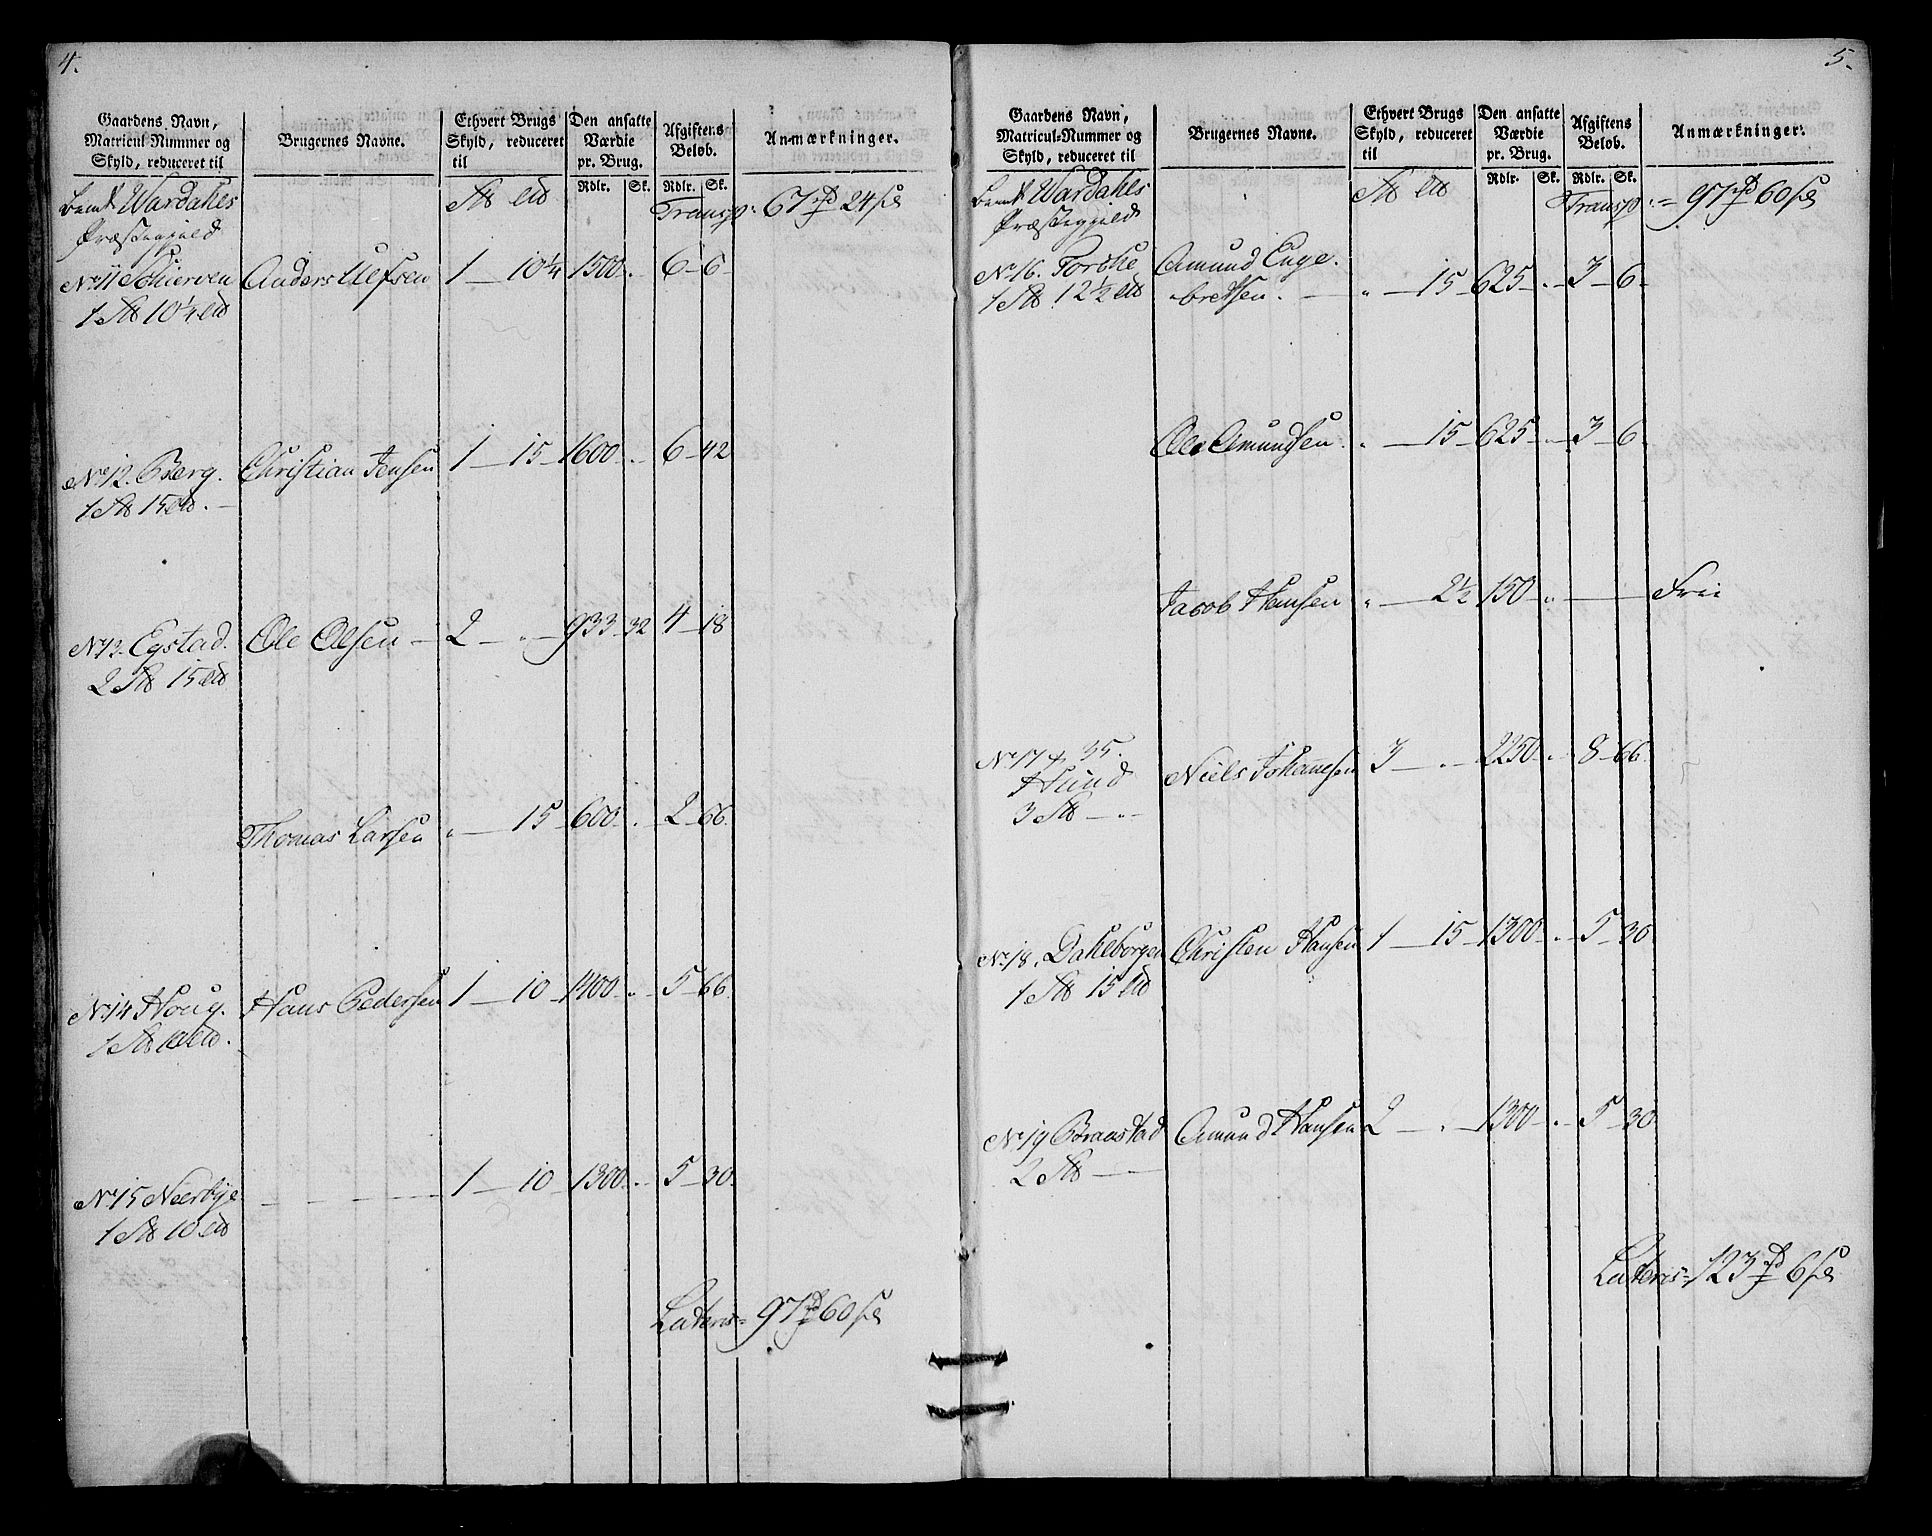 4.
Gaardens Navn, Matricul Nummer og Skyld, reduceret til
Brugernes Navne.
Ethvert Brugs Skyld, reduceret til
Den ansatte Værdie pr. Brug.
Afgiftens Beløb.
Anmærkninger.
Rdlr. Sk. Rdlr. Sk.
Wardahls Transp: 67 24
Præstegjeld
No 11 Schierven Anders Ulfsen 1 — 10¼ 1500 „ 6 — 6
1 10¼
No 12. Berg. Christian Jensen 1 — 15 1600 „ 6 — 42
1 15
No 13. Egstad. Ole Olsen — 2 — „ 933 — 32 4 — 18
2 15
Thomas Larsen „ — 15 600 „ 2 — 66
No 14 Houg. Hans Pedersen 1 — 10 1400 „ 5 — 66
1 10
No 15 Neerbye — — — 1 — 10 1300 „ 5 — 30
1 10
Lateris = 97 60
5.
Gaardens Navn, Matricul-Nummer og Skyld, reduceret til
Brugernes Navne.
Ethvert Brugs Skyld, reduceret til
Den ansatte Værdie pr. Brug.
Afgiftens Beløb.
Anmærkninger.
Rdlr. Sk. Rdlr. Sk.
Wardahls Transp: = 97 60
Præstegjeld
No 16. Torske Amund Enge-
1 12½ bretsen. „ — 15 625 „ 3 — 6
Ole Amundsen. „ — 15 625 „ 3 — 6
Jacob Hansen „ — 2½ 150 „ — Frii
No 17 & 35.
Hund Niels Johannesen 3 — „ 2250 „ 8 — 66
3 — „
No 18. Dahlborgen Christen Hansen 1 — 15 1300 „ 5 — 30
1 15
No 19 Braastad Amund Hansen 2 — „ 1300 „ 5 — 30
2 —
Lateris = 123 6